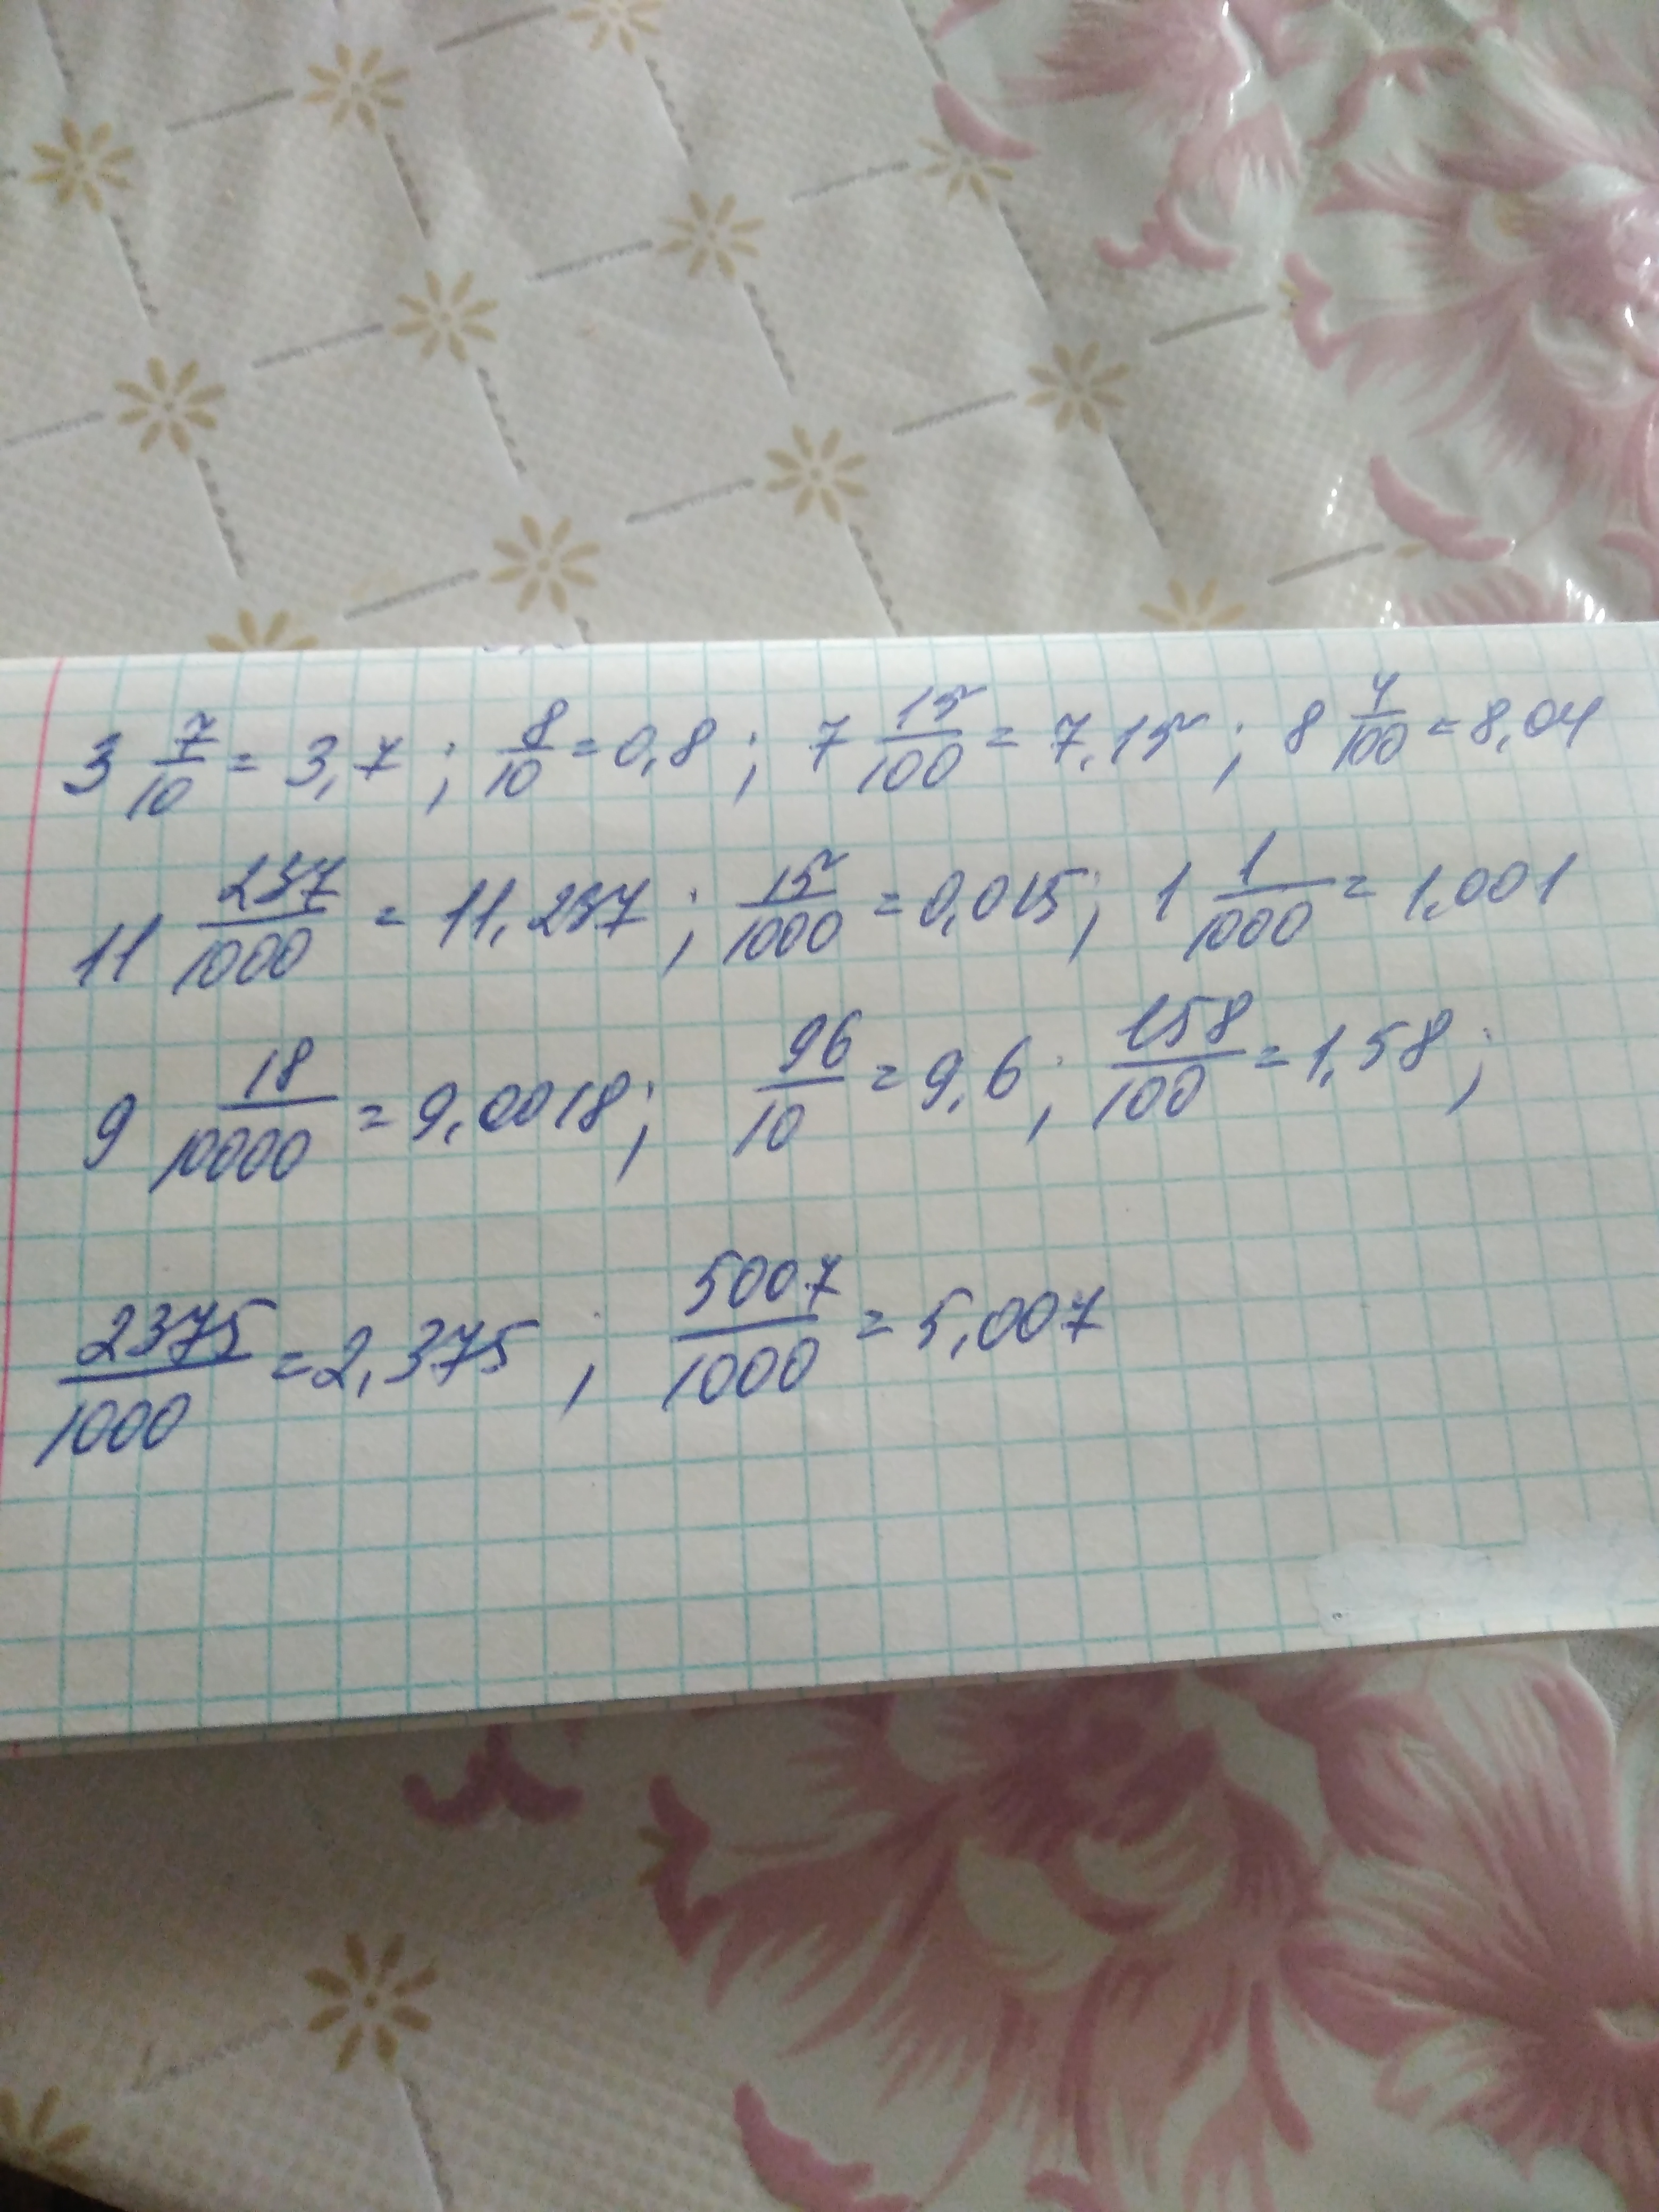 3 7/10 = 3,7 ; 8/10 = 0,8 ; 7 15/100 = 7,15 ; 8 4/100 = 8,04
11 237/1000 = 11,237 ; 15/1000 = 0,015 ; 1 1/1000 = 1,001
9 18/10000 = 9,0018 ; 96/10 = 9,6 ; 158/100 = 1,58 ;
2375/1000 = 2,375 ; 5007/1000 = 5,007